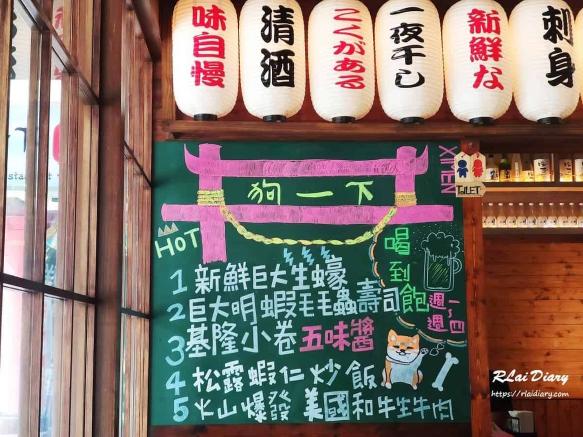 味自慢
清酒
こくがある
一夜干し
新鮮な
刺身
XIMEN
TOILET
狗一下
HOT
喝到飽
週一~週四
1 新鮮巨大生蠔
2 巨大明蝦毛毛蟲壽司
3 基隆小卷五味醬
4 松露蝦仁炒飯
5 火山爆發 美國和牛生牛肉
RLai Diary
https://rlaidiary.com